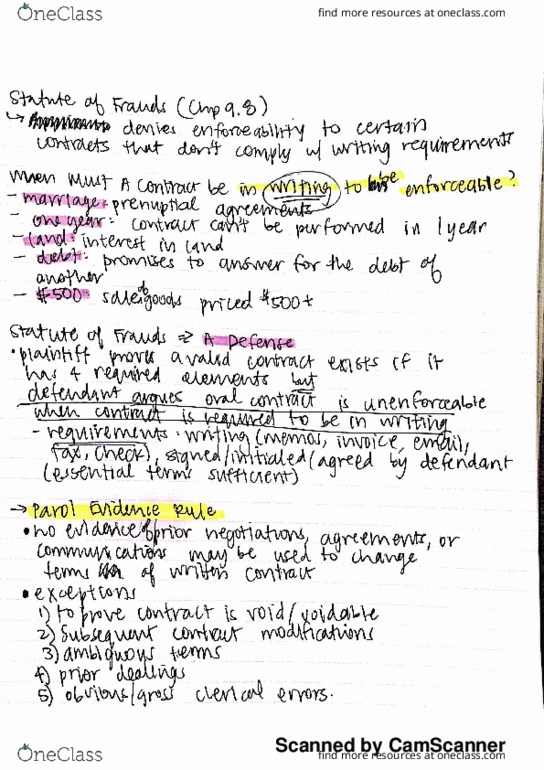 OneClass
find more resources at oneclass.com
Statute of Frauds (Chp 9.8)
↳ denies enforceability to certain
contracts that don't comply w/ writing requirements
When Must A Contract be in writing to be enforceable?
- marriage: prenuptial agreements
- one year: contract can't be performed in 1 year
- land: interest in land
- debt: promises to answer for the debt of
another
- $500: sale of goods priced $500+
Statute of Frauds => A Defense
• plaintiff proves a valid contract exists if it
has 4 required elements but
defendant argues oral contract is unenforceable
when contract is required to be in writing
- requirements · writing (memos, invoice, email,
fax, check), signed/initialed/agreed by defendant
(essential terms sufficient)
→ Parol Evidence Rule
• no evidence of prior negotiations, agreements, or
communications may be used to change
terms of written contract
• exceptions
1) to prove contract is void/voidable
2) Subsequent contract modifications
3) ambiguous terms
4) prior dealings
5) obvious/gross clerical errors.
Scanned by CamScanner
OneClass
find more resources at oneclass.com